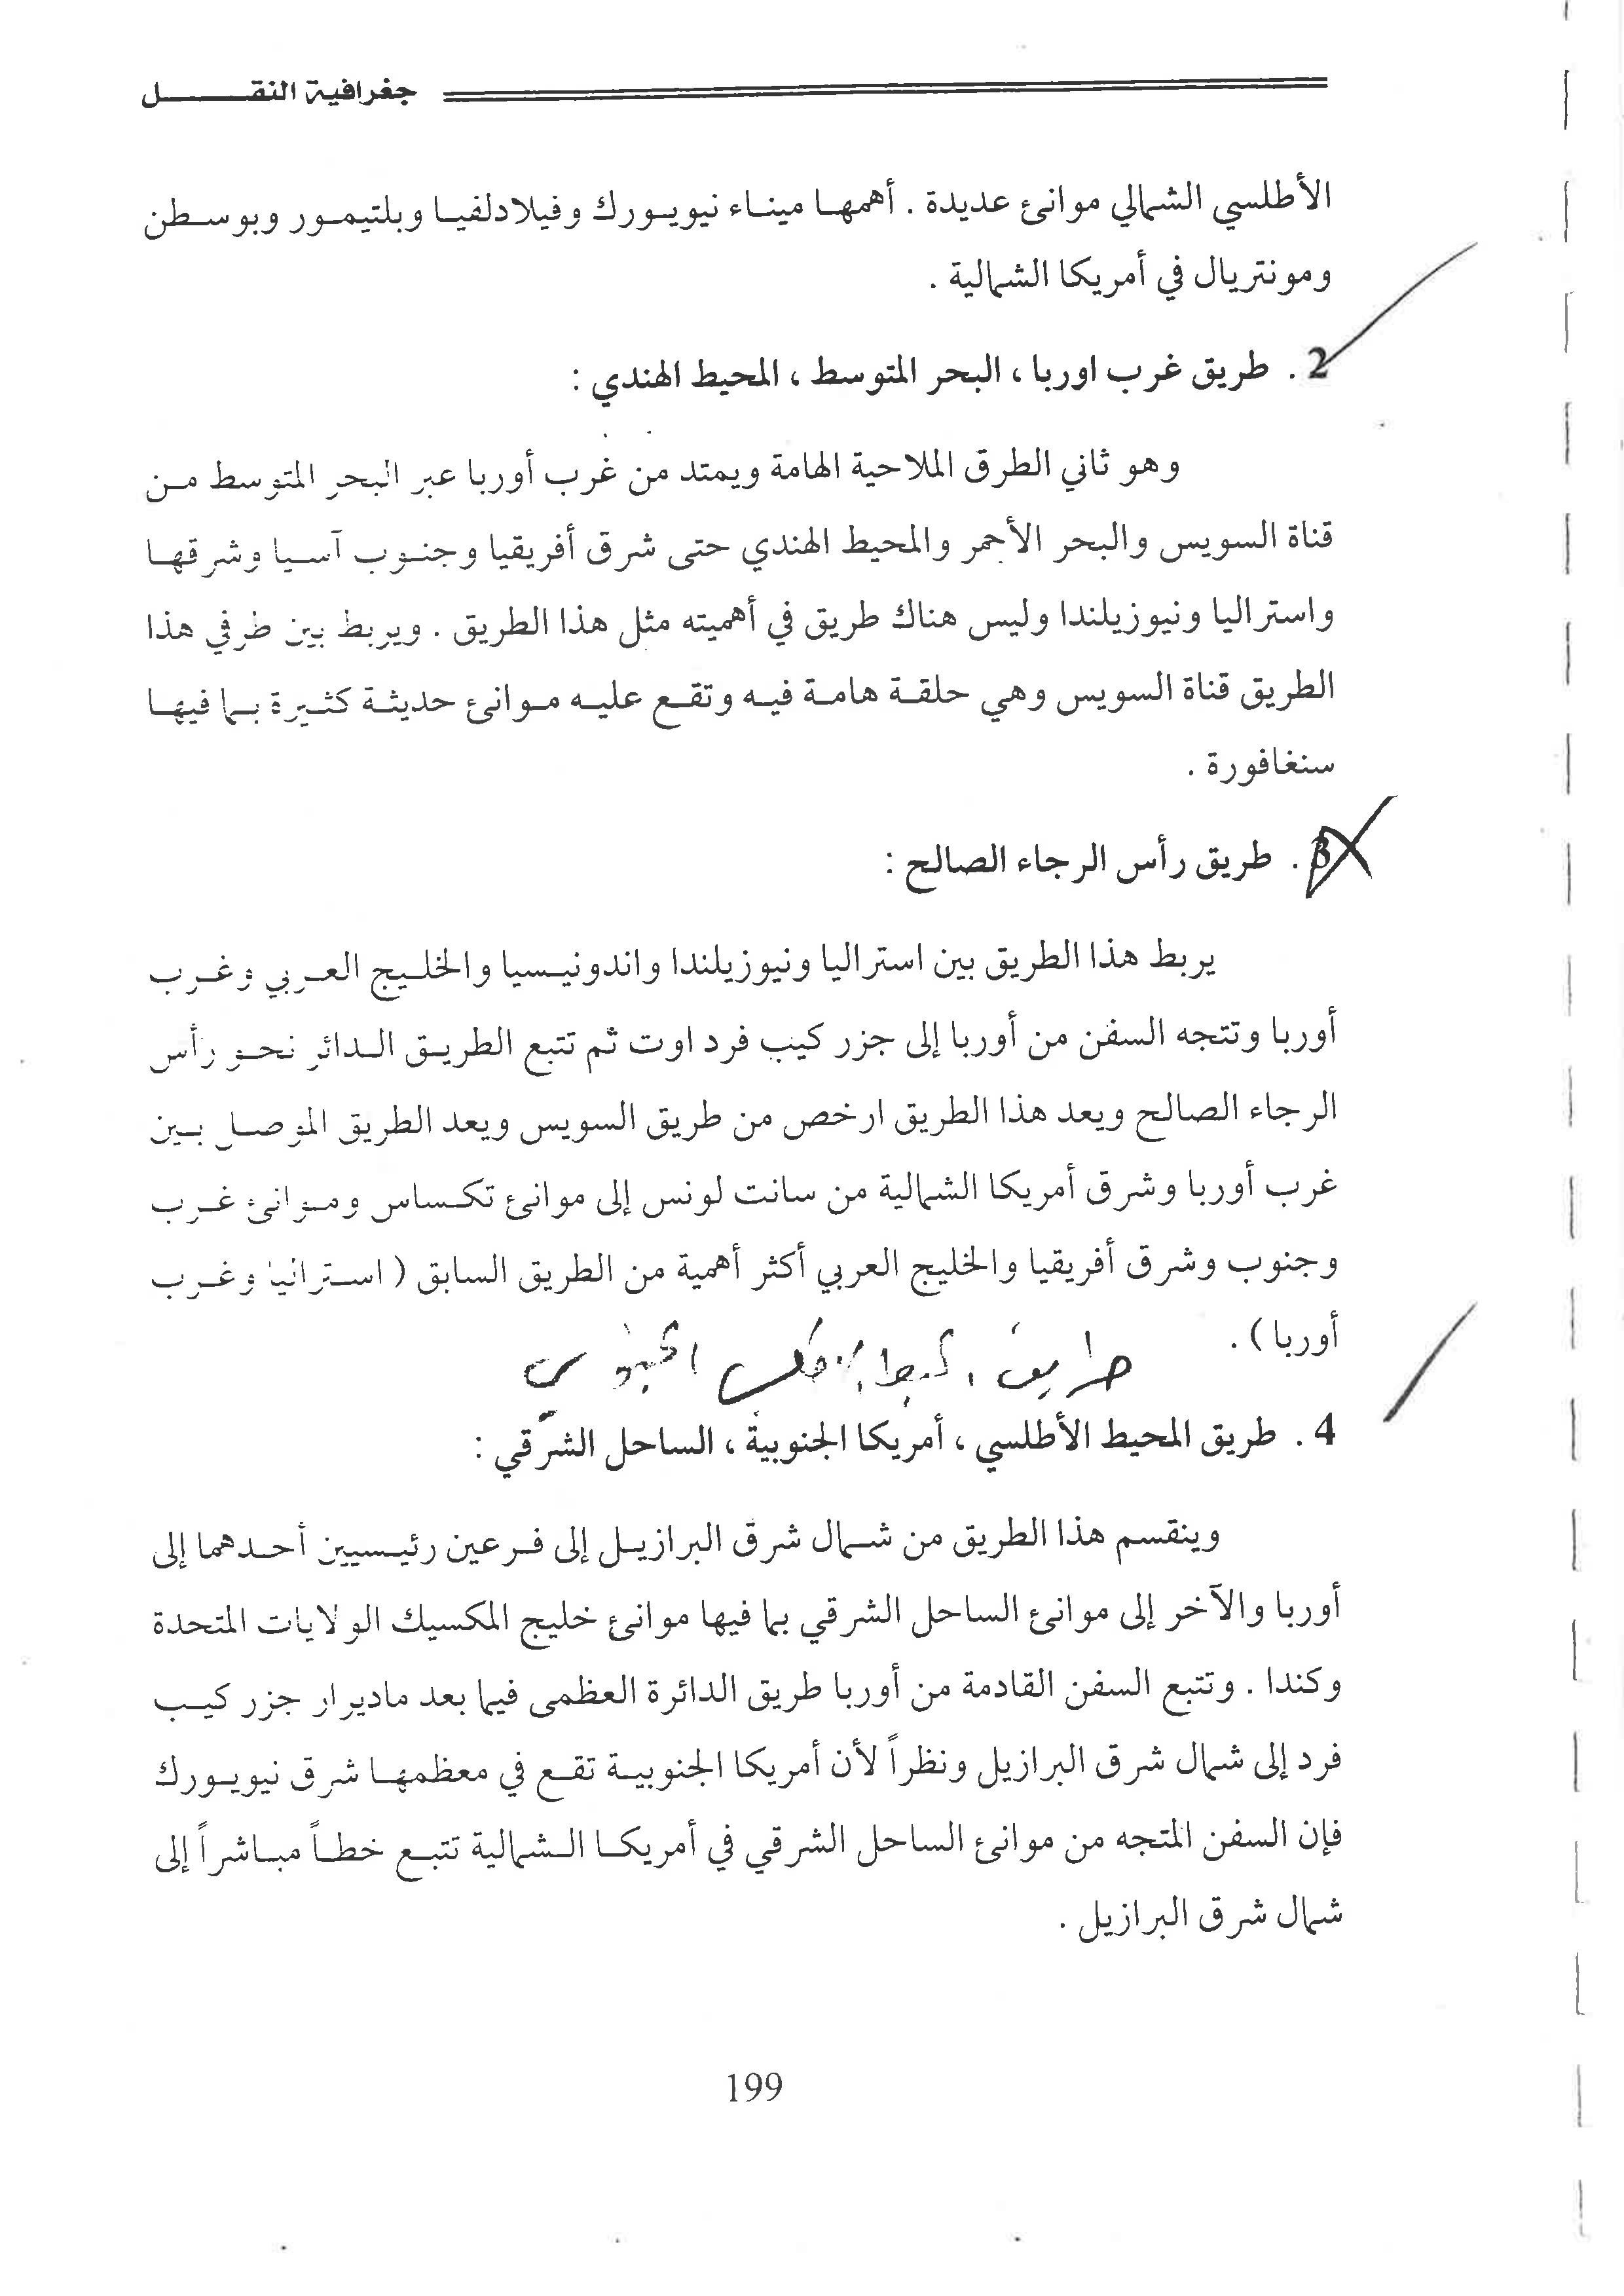 جغرافية النقل
الأطلسي الشمالي موانئ عديدة . أهمها ميناء نيويورك وفيلادلفيا وبلتيمور وبوسطن
ومونتريال في أمريكا الشمالية .
2 . طريق غرب اوربا ، البحر المتوسط ، المحيط الهندي :
وهو ثاني الطرق الملاحية الهامة ويمتد من غرب أوربا عبر البحر المتوسط من
قناة السويس والبحر الأحمر والمحيط الهندي حتى شرق أفريقيا وجنوب آسيا وشرقها
واستراليا ونيوزيلندا وليس هناك طريق في أهميته مثل هذا الطريق . ويربط بين طرفي هذا
الطريق قناة السويس وهي حلقة هامة فيه وتقع عليه موانئ حديثة كثيرة بما فيها
سنغافورة .
3 . طريق رأس الرجاء الصالح :
يربط هذا الطريق بين استراليا ونيوزيلندا واندونيسيا والخليج العربي وغرب
أوربا وتتجه السفن من أوربا إلى جزر كيب فرد اوت ثم تتبع الطريق الدائر نحو رأس
الرجاء الصالح ويعد هذا الطريق ارخص من طريق السويس ويعد الطريق الموصل بين
غرب أوربا وشرق أمريكا الشمالية من سانت لونس إلى موانئ تكساس وموانئ غرب
وجنوب وشرق أفريقيا والخليج العربي أكثر أهمية من الطريق السابق ( استراليا وغرب
أوربا ) .
طريق المحيط الاطلسي الجنوبي
4 . طريق المحيط الأطلسي ، أمريكا الجنوبية ، الساحل الشرقي :
وينقسم هذا الطريق من شمال شرق البرازيل إلى فرعين رئيسيين أحدهما إلى
أوربا والآخر إلى موانئ الساحل الشرقي بما فيها موانئ خليج المكسيك الولايات المتحدة
وكندا . وتتبع السفن القادمة من أوربا طريق الدائرة العظمى فيما بعد ماديرار جزر كيب
فرد إلى شمال شرق البرازيل ونظراً لأن أمريكا الجنوبية تقع في معظمها شرق نيويورك
فإن السفن المتجه من موانئ الساحل الشرقي في أمريكا الشمالية تتبع خطاً مباشراً إلى
شمال شرق البرازيل .
199